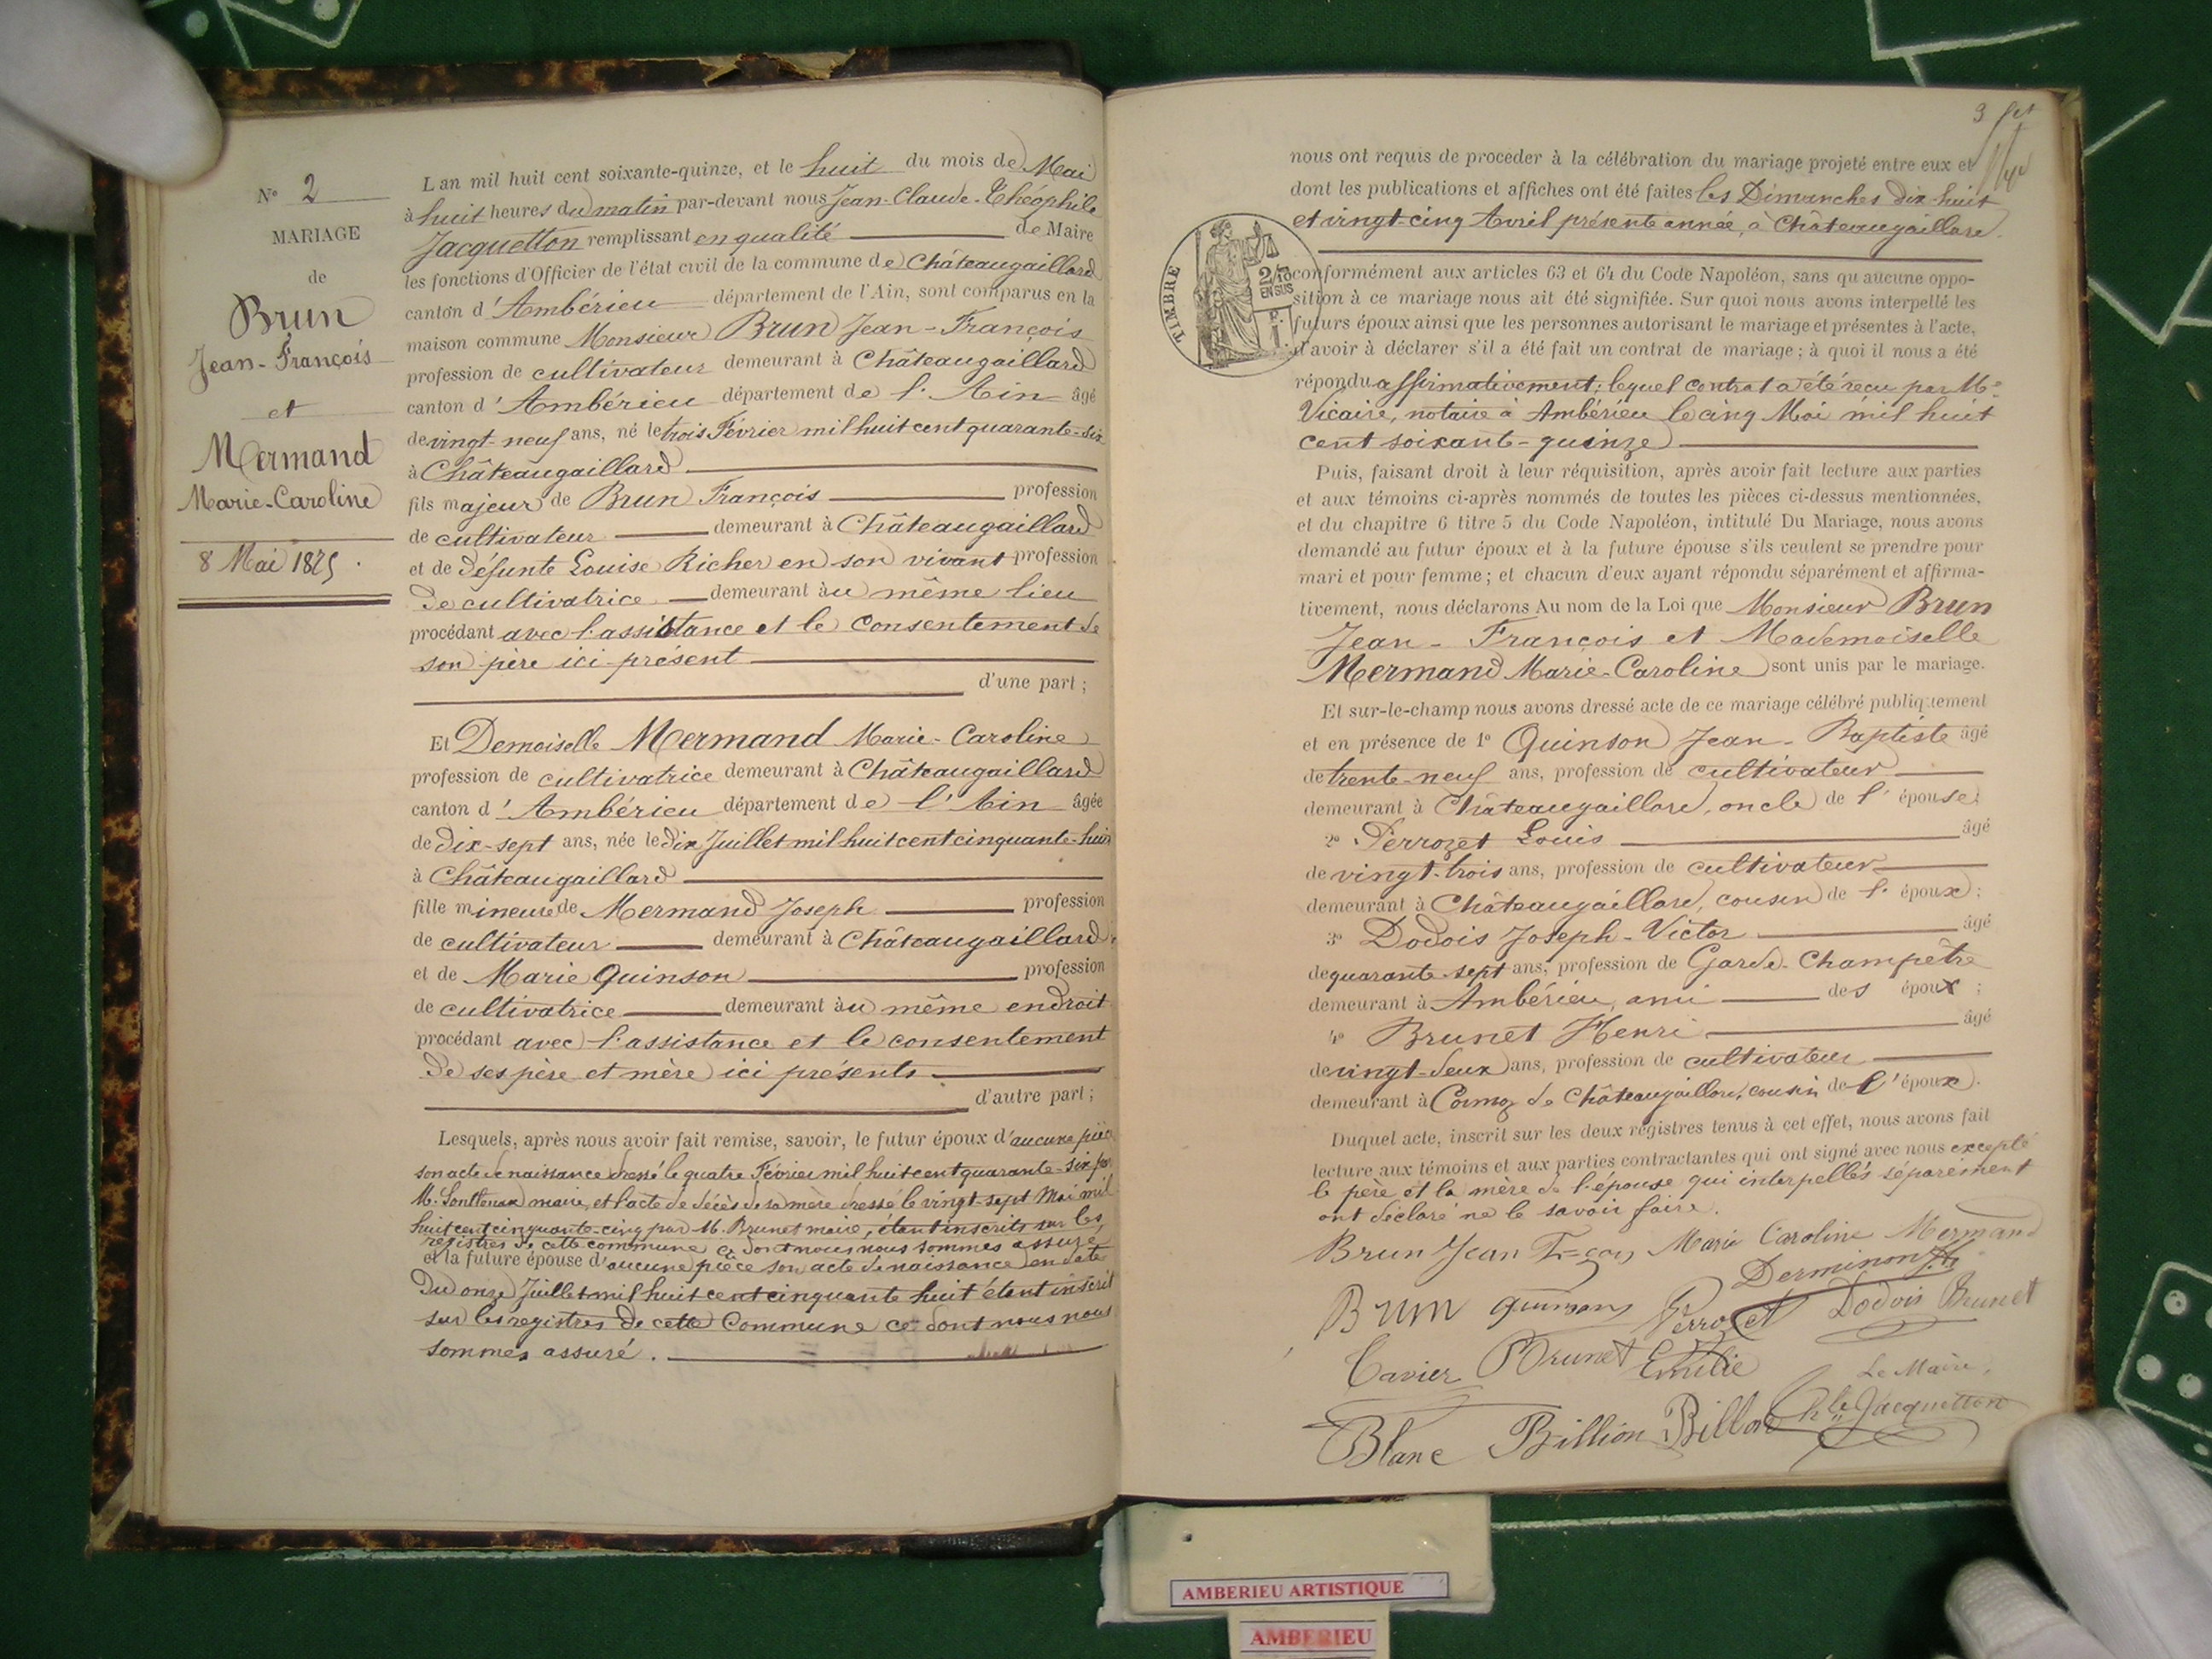 N° 2
MARIAGE
de
Brun
Jean-François
et
Mermand
Marie-Caroline
8 Mai 1875.
L'an mil huit cent soixante-quinze, et le huit du mois de Mai
à huit heures du matin par-devant nous Jean-Claude-Théophile
Jacquetton remplissant en qualité de Maire
les fonctions d'Officier de l'état civil de la commune de Châteaugaillard
canton d'Ambérieu département de l'Ain, sont comparus en la
maison commune Monsieur Brun Jean-François
profession de cultivateur demeurant à Châteaugaillard
canton d'Ambérieu département de l'Ain âgé
de vingt-neuf ans, né le trois Février mil huit cent quarante-six
à Châteaugaillard
fils majeur de Brun François profession
de cultivateur demeurant à Châteaugaillard
et de défunte Louise Richer en son vivant profession
de cultivatrice demeurant au même lieu
procédant avec l'assistance et le consentement de
son père ici présent
d'une part;
Et Demoiselle Mermand Marie-Caroline
profession de cultivatrice demeurant à Châteaugaillard
canton d'Ambérieu département de l'Ain âgée
de dix-sept ans, née le dix Juillet mil huit cent cinquante-huit
à Châteaugaillard
fille mineure de Mermand Joseph profession
de cultivateur demeurant à Châteaugaillard
et de Marie Quinson profession
de cultivatrice demeurant au même endroit
procédant avec l'assistance et le consentement
de ses père et mère ici présents
d'autre part;
Lesquels, après nous avoir fait remise, savoir, le futur époux d'aucune pièce
son acte de naissance dressé le quatre Février mil huit cent quarante-six par
M. maire, et l'acte de décès de sa mère dressé le vingt-sept Mai mil
huit cent cinquante-cinq par M. Brunet maire, étant inscrits sur les
registres de cette commune ce dont nous nous sommes assuré
et la future épouse d'aucune pièce son acte de naissance en date
du onze Juillet mil huit cent cinquante huit étant inscrit
sur les registres de cette Commune ce dont nous nous
sommes assuré.
3
nous ont requis de procéder à la célébration du mariage projeté entre eux et
dont les publications et affiches ont été faites les Dimanches dix-huit
et vingt-cinq Avril présente année, à Châteaugaillard.
TIMBRE
2/10
EN SUS
conformément aux articles 63 et 64 du Code Napoléon, sans qu'aucune oppo-
sition à ce mariage nous ait été signifiée. Sur quoi nous avons interpellé les
futurs époux ainsi que les personnes autorisant le mariage et présentes à l'acte,
d'avoir à déclarer s'il a été fait un contrat de mariage; à quoi il nous a été
répondu affirmativement; lequel contrat a été reçu par Me
Vicaire, notaire à Ambérieu le cinq Mai mil huit
cent soixante-quinze
Puis, faisant droit à leur réquisition, après avoir fait lecture aux parties
et aux témoins ci-après nommés de toutes les pièces ci-dessus mentionnées,
et du chapitre 6 titre 5 du Code Napoléon, intitulé Du Mariage, nous avons
demandé au futur époux et à la future épouse s'ils veulent se prendre pour
mari et pour femme; et chacun d'eux ayant répondu séparément et affirma-
tivement, nous déclarons Au nom de la Loi que Monsieur Brun
Jean-François et Mademoiselle
Mermand Marie-Caroline sont unis par le mariage.
Et sur-le-champ nous avons dressé acte de ce mariage célébré publiquement
et en présence de 1° Quinson Jean-Baptiste âgé
de trente-neuf ans, profession de cultivateur
demeurant à Châteaugaillard, oncle de l'épouse;
2° Perrozet Louis âgé
de vingt-trois ans, profession de cultivateur
demeurant à Châteaugaillard, cousin de l'époux;
3° Dodois Joseph-Victor âgé
de quarante-sept ans, profession de Garde-Champêtre
demeurant à Ambérieu, ami des époux;
4° Brunet Henri âgé
de vingt-deux ans, profession de cultivateur
demeurant à Cormoz de Châteaugaillard, cousin de l'époux.
Duquel acte, inscrit sur les deux registres tenus à cet effet, nous avons fait
lecture aux témoins et aux parties contractantes qui ont signé avec nous excepté
le père et la mère de l'épouse qui interpellés séparément
ont déclaré ne le savoir faire.
Brun Jean Fçois Marie Caroline Mermand
Derminon
Brun Quinson Perrozet Dodois Brunet
Tavier Brunet Emilie Le Maire,
Blanc Billion Billon Jacquetton
AMBERIEU ARTISTIQUE
AMBERIEU